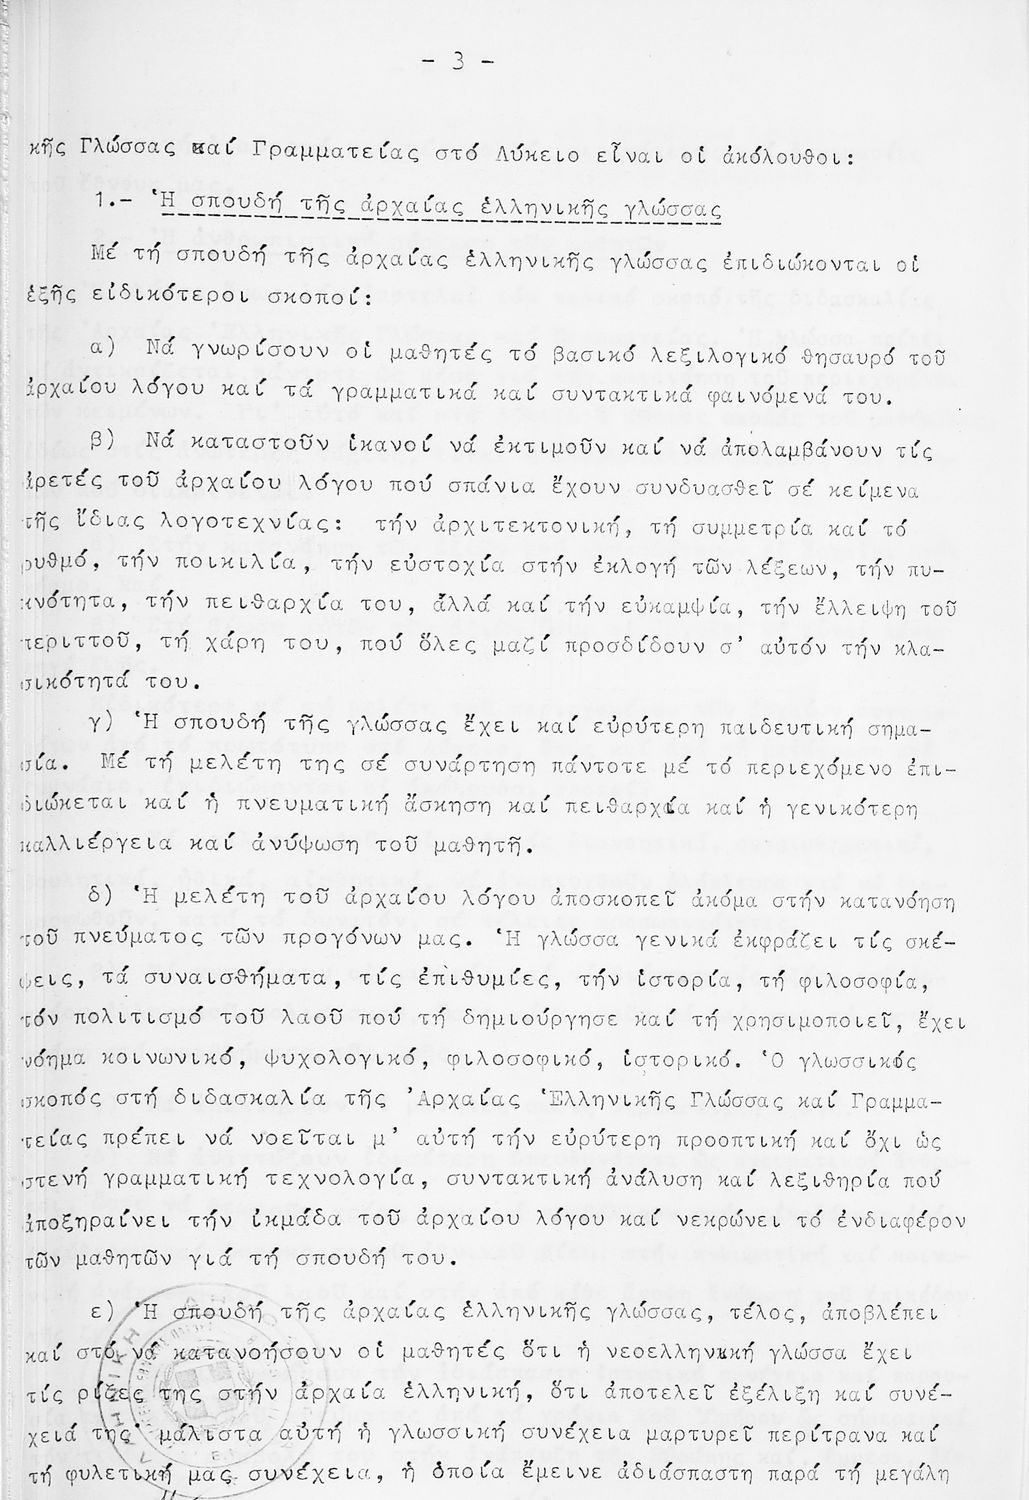 - 3 -
κῆς Γλώσσας καί Γραμματείας στό Λύκειο εἶναι οἱ ἀκόλουθοι:
1.- Ἡ σπουδή τῆς ἀρχαίας ἑλληνικῆς γλώσσας
Μέ τή σπουδή τῆς ἀρχαίας ἑλληνικῆς γλώσσας ἐπιδιώκονται οἱ
ἑξῆς εἰδικότεροι σκοποί:
α) Νά γνωρίσουν οἱ μαθητές τό βασικό λεξιλογικό θησαυρό τοῦ
ἀρχαίου λόγου καί τά γραμματικά καί συντακτικά φαινόμενά του.
β) Νά καταστοῦν ἱκανοί νά ἐκτιμοῦν καί νά ἀπολαμβάνουν τίς
ἀρετές τοῦ ἀρχαίου λόγου πού σπάνια ἔχουν συνδυασθεῖ σέ κείμενα
τῆς ἴδιας λογοτεχνίας: τήν ἀρχιτεκτονική, τή συμμετρία καί τό
ρυθμό, τήν ποικιλία, τήν εὐστοχία στήν ἐκλογή τῶν λέξεων, τήν πυ-
κνότητα, τήν πειθαρχία του, ἀλλά καί τήν εὐκαμψία, τήν ἔλλειψη τοῦ
περιττοῦ, τή χάρη του, πού ὅλες μαζί προσδίδουν σ' αὐτόν τήν κλα-
σικότητά του.
γ) Ἡ σπουδή τῆς γλώσσας ἔχει καί εὐρύτερη παιδευτική σημα-
σία. Μέ τή μελέτη της σέ συνάρτηση πάντοτε μέ τό περιεχόμενο ἐπι-
διώκεται καί ἡ πνευματική ἄσκηση καί πειθαρχία καί ἡ γενικότερη
καλλιέργεια καί ἀνύψωση τοῦ μαθητῆ.
δ) Ἡ μελέτη τοῦ ἀρχαίου λόγου ἀποσκοπεῖ ἀκόμα στήν κατανόηση
τοῦ πνεύματος τῶν προγόνων μας. Ἡ γλώσσα γενικά ἐκφράζει τίς σκέ-
ψεις, τά συναισθήματα, τίς ἐπιθυμίες, τήν ἱστορία, τή φιλοσοφία,
τόν πολιτισμό τοῦ λαοῦ πού τή δημιούργησε καί τή χρησιμοποιεῖ, ἔχει
νόημα κοινωνικό, ψυχολογικό, φιλοσοφικό, ἱστορικό. Ὁ γλωσσικός
σκοπός στή διδασκαλία τῆς Ἀρχαίας Ἑλληνικῆς Γλώσσας καί Γραμμα-
τείας πρέπει νά νοεῖται μ' αὐτή τήν εὐρύτερη προοπτική καί ὄχι ὡς
στενή γραμματική τεχνολογία, συντακτική ἀνάλυση καί λεξιθηρία πού
ἀποξηραίνει τήν ἰκμάδα τοῦ ἀρχαίου λόγου καί νεκρώνει τό ἐνδιαφέρον
τῶν μαθητῶν γιά τή σπουδή του.
ε) Ἡ σπουδή τῆς ἀρχαίας ἑλληνικῆς γλώσσας, τέλος, ἀποβλέπει
καί στό νά κατανοήσουν οἱ μαθητές ὅτι ἡ νεοελληνική γλώσσα ἔχει
τίς ρίζες της στήν ἀρχαία ἑλληνική, ὅτι ἀποτελεῖ ἐξέλιξη καί συνέ-
χειά της· μάλιστα αὐτή ἡ γλωσσική συνέχεια μαρτυρεῖ περίτρανα καί
τή φυλετική μας συνέχεια, ἡ ὁποία ἔμεινε ἀδιάσπαστη παρά τή μεγάλη